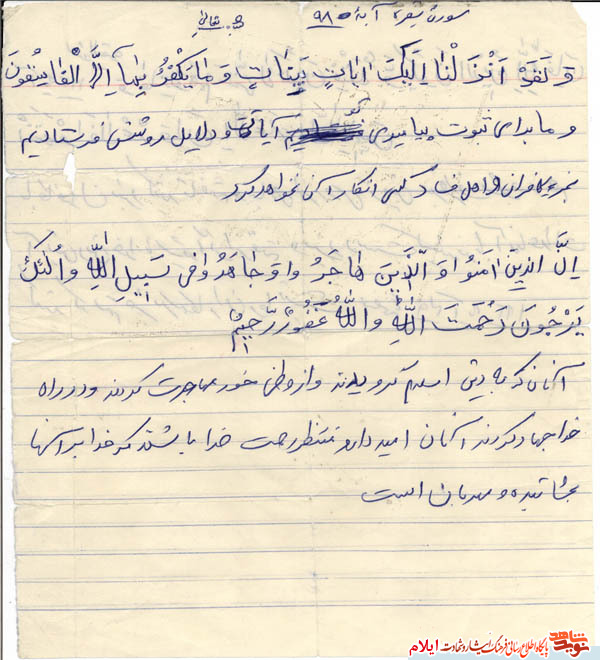 سوره بقره آیهٔ ۹۸
بسمه تعالی
وَ لَقَدْ اَنْزَلْنا اِلَیْکَ ایاتٍ بَیِّناتٍ وَ مَا یَکْفُرُ بِهَا اِلَّا الْفاسِقُونَ
و ما برای ثبوت پیامبری تو آیاتی و دلایل روشن فرستادیم
بجز کافران و اهل فساد کسی انکار آن نخواهد کرد
اِنَّ الَّذینَ امَنُوا وَ الَّذینَ هاجَرُوا وَ جاهَدُوا فی سَبیلِ اللهِ وَ اُلئکَ
یَرْجُونَ رَحْمَتَ اللهِ وَ اللهُ غَفُورٌ رَّحیمٌ
آنانکه به دین اسلام گرویدند و از وطن خود مهاجرت کردند و در راه
خدا جهاد کردند آنان امیدوار و منتظر رحمت خدا باشند که خدا بر آنها
بخشاینده و مهربان است
نوید شاهد
پایگاه اطلاع رسانی فرهنگ ایثار و شهادت ایلام